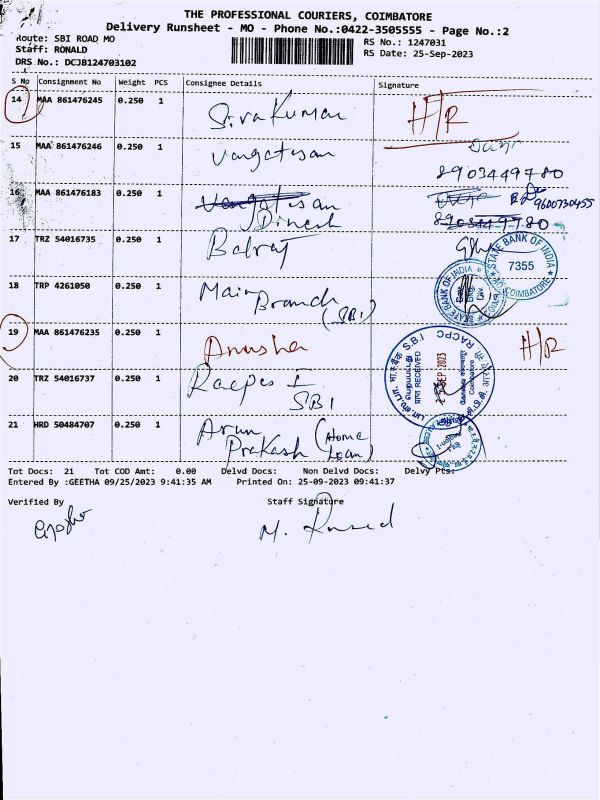 THE PROFESSIONAL COURIERS, COIMBATORE
Delivery Runsheet - MO - Phone No.:0422-3505555 - Page No.:2
Route: SBI ROAD MO
Staff: RONALD
DRS No.: DCJB124703102
RS No.: 1247031
RS Date: 25-Sep-2023
S No Consignment No Weight PCS Consignee Details Signature
14 MAA 861476245 0.250 1 Sivakumar H/R
15 MAA 861476246 0.250 1 Vangatesan
8903449780
16 MAA 861476183 0.250 1 Vangatesan
Dinesh
9600730455
8903449780
17 TRZ 54016735 0.250 1 Balraj
STATE BANK OF INDIA
7355
COIMBATORE
18 TRP 4261050 0.250 1 Main
Branch
(SBI)
STATE BANK OF INDIA
19 MAA 861476235 0.250 1 Anusha H/R
S.B.I. RACPC
SEP 2023
Coimbatore
20 TRZ 54016737 0.250 1 Racpc
SBI
21 HRD 50484707 0.250 1 Arun
Prakash (Home
Loan)
Tot Docs: 21 Tot COD Amt: 0.00 Delvd Docs: Non Delvd Docs: Delvy Pts:
Entered By :GEETHA 09/25/2023 9:41:35 AM Printed On: 25-09-2023 09:41:37
Verified By Staff Signature